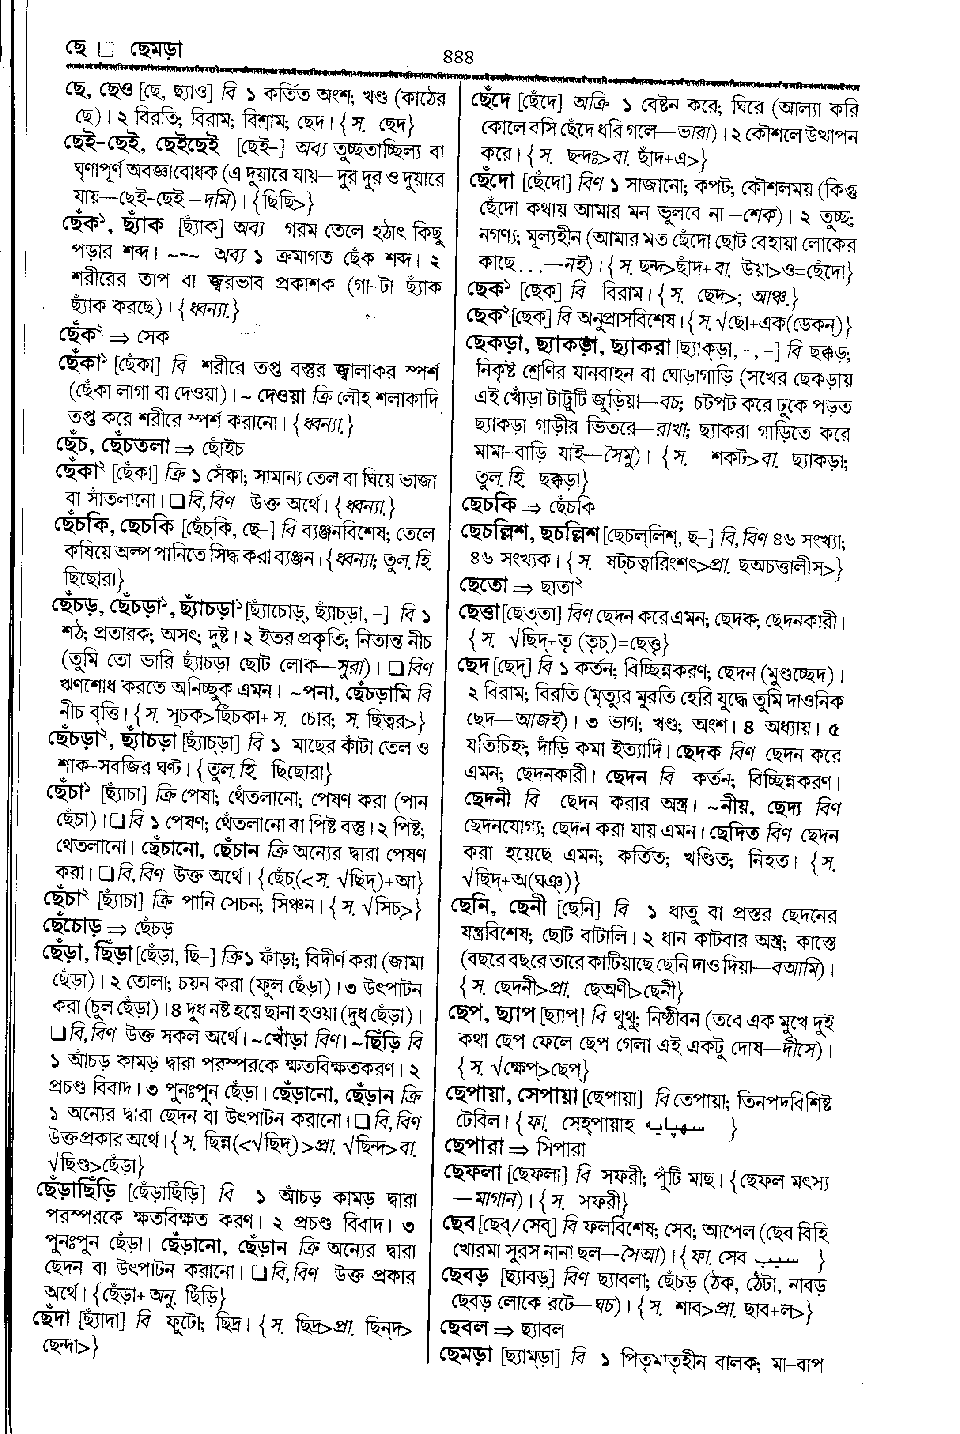 ছে □ ছেমড়া
৪৪৪
ছে, ছেও [ছে, ছ্যাও] বি ১ কর্তিত অংশ; খণ্ড (কাঠের
ছে)। ২ বিরতি; বিরাম; বিশ্রাম; ছেদ। {স. ছেদ}
ছেই-ছেই, ছেইছেই [ছেই-] অব্য তুচ্ছতাচ্ছিল্য বা
ঘৃণাপূর্ণ অবজ্ঞাবোধক (এ দুয়ারে যায়—দুর দুর ও দুয়ারে
যায়—ছেই-ছেই –দমি)। {ছিছি>}
ছেঁক১, ছ্যাঁক [ছ্যাঁক] অব্য গরম তেলে হঠাৎ কিছু
পড়ার শব্দ। ~~~ অব্য ১ ক্রমাগত ছেঁক শব্দ। ২
শরীরের তাপ বা জ্বরভাব প্রকাশক (গা-টা ছ্যাঁক
ছ্যাঁক করছে)। {ধ্বন্যা.}
ছেঁক২ ⇒ সেক
ছেঁকা১ [ছেঁকা] বি শরীরে তপ্ত বস্তুর জ্বালাকর স্পর্শ
(ছেঁকা লাগা বা দেওয়া)। ~ দেওয়া ক্রি লৌহ শলাকাদি
তপ্ত করে শরীরে স্পর্শ করানো। {ধ্বন্যা.}
ছেঁচ, ছেঁচতলা ⇒ ছোঁইচ
ছেঁকা২ [ছেঁকা] ক্রি ১ সেঁকা; সামান্য তেল বা ঘিয়ে ভাজা
বা সাঁতলানো। □ বি, বিণ উক্ত অর্থে। {ধ্বন্যা.}
ছেঁচকি, ছেচকি [ছেঁচকি, ছে–] বি ব্যঞ্জনবিশেষ; তেলে
কষিয়ে অল্প পানিতে সিদ্ধ করা ব্যঞ্জন। {ধ্বন্যা; তুল. হি.
ছিছোরা}
ছেঁচড়, ছেঁচড়া১, ছ্যাঁচড়া১ [ছ্যাঁচোড়, ছ্যাঁচ্‌ড়া, –] বি ১
শঠ; প্রতারক; অসৎ; দুষ্ট। ২ ইতর প্রকৃতি; নিতান্ত নীচ
(তুমি তো ভারি ছ্যাঁচড়া ছোট লোক—সুরা)। □ বিণ
ঋণশোধ করতে অনিচ্ছুক এমন। ~পনা, ছেঁচড়ামি বি
নীচ বৃত্তি। {স. সূচক>ছিঁচকা+ স. চোর; স. ছিত্বর>}
ছেঁচড়া২, ছ্যাঁচড়া [ছ্যাঁচ্‌ড়া] বি ১ মাছের কাঁটা তেল ও
শাক–সবজির ঘণ্ট। {তুল. হি. ছিছোরা}
ছেঁচা১ [ছ্যাঁচা] ক্রি পেষা; থেঁতলানো; পেষণ করা (পান
ছেঁচা)। □ বি ১ পেষণ; থেঁতলানো বা পিষ্ট বস্তু। ২ পিষ্ট;
থেতলানো। ছেঁচানো, ছেঁচান ক্রি অন্যের দ্বারা পেষণ
করা। □ বি, বিণ উক্ত অর্থে। {ছেঁচ(< স. √ছিদ্)+আ}
ছেঁচা২ [ছ্যাঁচা] ক্রি পানি সেচন; সিঞ্চন। {স. √সিচ>}
ছেঁচোড় ⇒ ছেঁচড়
ছেঁড়া, ছিঁড়া [ছেঁড়া, ছিঁ–] ক্রি ১ ফাঁড়া; বিদীর্ণ করা (জামা
ছেঁড়া)। ২ তোলা; চয়ন করা (ফুল ছেঁড়া)। ৩ উৎপাটন
করা (চুল ছেঁড়া)। ৪ দুধ নষ্ট হয়ে ছানা হওয়া (দুধ ছেঁড়া)।
□ বি, বিণ উক্ত সকল অর্থে। ~খোঁড়া বিণ। ~ছিঁড়ি বি
১ আঁচড় কামড় দ্বারা পরস্পরকে ক্ষতবিক্ষতকরণ। ২
প্রচণ্ড বিবাদ। ৩ পুনঃপুন ছেঁড়া। ছেঁড়ানো, ছেঁড়ান ক্রি
১ অন্যের দ্বারা ছেদন বা উৎপাটন করানো। □ বি, বিণ
উক্তপ্রকার অর্থে। {স. ছিন্ন(<√ছিদ্)>প্রা. √ছিন্দ>বা.
√ছিণ্ড>ছেঁড়া}
ছেঁড়াছিঁড়ি [ছেঁড়াছিঁড়ি] বি ১ আঁচড় কামড় দ্বারা
পরস্পরকে ক্ষতবিক্ষত করণ। ২ প্রচণ্ড বিবাদ। ৩
পুনঃপুন ছেঁড়া। ছেঁড়ানো, ছেঁড়ান ক্রি অন্যের দ্বারা
ছেদন বা উৎপাটন করানো। □ বি, বিণ উক্ত প্রকার
অর্থে। {ছেঁড়া+ অনু. ছিঁড়ি}
ছেঁদা [ছ্যাঁদা] বি ফুটো; ছিদ্র। {স. ছিদ্র>প্রা. ছিন্‌দ>
ছেন্দা>}
ছেঁদে [ছেঁদে] অক্রি ১ বেষ্টন করে; ঘিরে (আল্যা করি
কোলে বসি ছেঁদে ধবি গলে—ভারা)। ২ কৌশলে উত্থাপন
করে। {স. ছন্দঃ>বা. ছাঁদ+এ>}
ছেঁদো [ছেঁদো] বিণ ১ সাজানো; কপট; কৌশলময় (কিন্তু
ছেঁদো কথায় আমার মন ভুলবে না –শেক)। ২ তুচ্ছ;
নগণ্য; মূল্যহীন (আমার মত ছেঁদো ছোট বেহায়া লোকের
কাছে...—নই)। {স. ছন্দ>ছাঁদ+ বা. উয়া>ও=ছেঁদো}
ছেক১ [ছেক] বি বিরাম। {স. ছেদ>; আঞ্চ.}
ছেক২ [ছেক] বি অনুপ্রাসবিশেষ। {স. √ছো+এক(ডেকন্)}
ছেকড়া, ছ্যাকড়া, ছ্যাকরা [ছ্যাক্‌ড়া, -, –] বি ছক্কড়;
নিকৃষ্ট শ্রেণির যানবাহন বা ঘোড়াগাড়ি (সখের ছেকড়ায়
এই খোঁড়া টাট্টুটি জুড়িয়া—বচ; চটপট করে ঢুকে পড়ত
ছ্যাকড়া গাড়ীর ভিতরে—রাখা; ছ্যাকরা গাড়িতে করে
মামা-বাড়ি যাই—সৈমু)। {স. শকট>বা. ছ্যাকড়া;
তুল. হি. ছক্কড়া}
ছেচকি ⇒ ছেঁচকি
ছেচল্লিশ, ছচল্লিশ [ছেচল্‌লিশ্, ছ–] বি, বিণ ৪৬ সংখ্যা;
৪৬ সংখ্যক। {স. ষট্‌চত্বারিংশৎ>প্রা. ছঅচত্তালীস>}
ছেতো ⇒ ছাতা২
ছেত্তা [ছেত্‌তা] বিণ ছেদন করে এমন; ছেদক, ছেদনকারী।
{স. √ছিদ্‌–তৃ (তৃচ্)=ছেত্তৃ}
ছেদ [ছেদ্] বি ১ কর্তন; বিচ্ছিন্নকরণ; ছেদন (মুণ্ডচ্ছেদ)।
২ বিরাম; বিরতি (মৃত্যুর মুরতি হেরি যুদ্ধে তুমি দাওনিক
ছেদ—আজই)। ৩ ভাগ; খণ্ড; অংশ। ৪ অধ্যায়। ৫
যতিচিহ্ন; দাঁড়ি কমা ইত্যাদি। ছেদক বিণ ছেদন করে
এমন; ছেদনকারী। ছেদন বি কর্তন; বিচ্ছিন্নকরণ।
ছেদনী বি ছেদন করার অস্ত্র। ~নীয়, ছেদ্য বিণ
ছেদনযোগ্য; ছেদন করা যায় এমন। ছেদিত বিণ ছেদন
করা হয়েছে এমন; কর্তিত; খণ্ডিত; নিহত। {স.
√ছিদ্+অ(ঘঞ্)}
ছেনি, ছেনী [ছেনি] বি ১ ধাতু বা প্রস্তর ছেদনের
যন্ত্রবিশেষ; ছোট বাটালি। ২ ধান কাটবার অস্ত্র; কাস্তে
(বছরে বছরে তারে কাটিয়াছে ছেনি দাও দিয়া—বআমি)।
{স. ছেদনী>প্রা. ছেঅণী>ছেনী}
ছেপ, ছ্যাপ [ছ্যাপ্] বি থুথু; নিষ্ঠীবন (তবে এক মুখে দুই
কথা ছেপ ফেলে ছেপ গেলা এই একটু দোষ—দীসে)।
{স. √ক্ষেপ্>ছেপ্}
ছেপায়া, সেপায়া [ছেপায়া] বি তেপায়া; তিনপদবিশিষ্ট
টেবিল। {ফা. সেহ্‌পায়াহ سهپايه }
ছেপারা ⇒ সিপারা
ছেফলা [ছেফলা] বি সফরী; পুঁটি মাছ। {ছেফল মৎস্য
—মাগান)। {স. সফরী}
ছেব [ছেব্/সেব্] বি ফলবিশেষ; সেব; আপেল (ছেব বিহি
খোরমা সুরস নানা ছল—সৈআ)। {ফা. সেব سيب }
ছেবড় [ছ্যাবড়্] বিণ ছ্যাবলা; ছেঁচড় (ঠক, ঠেঁটা, নাবড়
ছেবড় লোকে রটে—ঘচ)। {স. শাব>প্রা. ছাব+ল>}
ছেবল ⇒ ছ্যাবল
ছেমড়া [ছ্যাম্‌ড়া] বি ১ পিতৃমাতৃহীন বালক; মা–বাপ